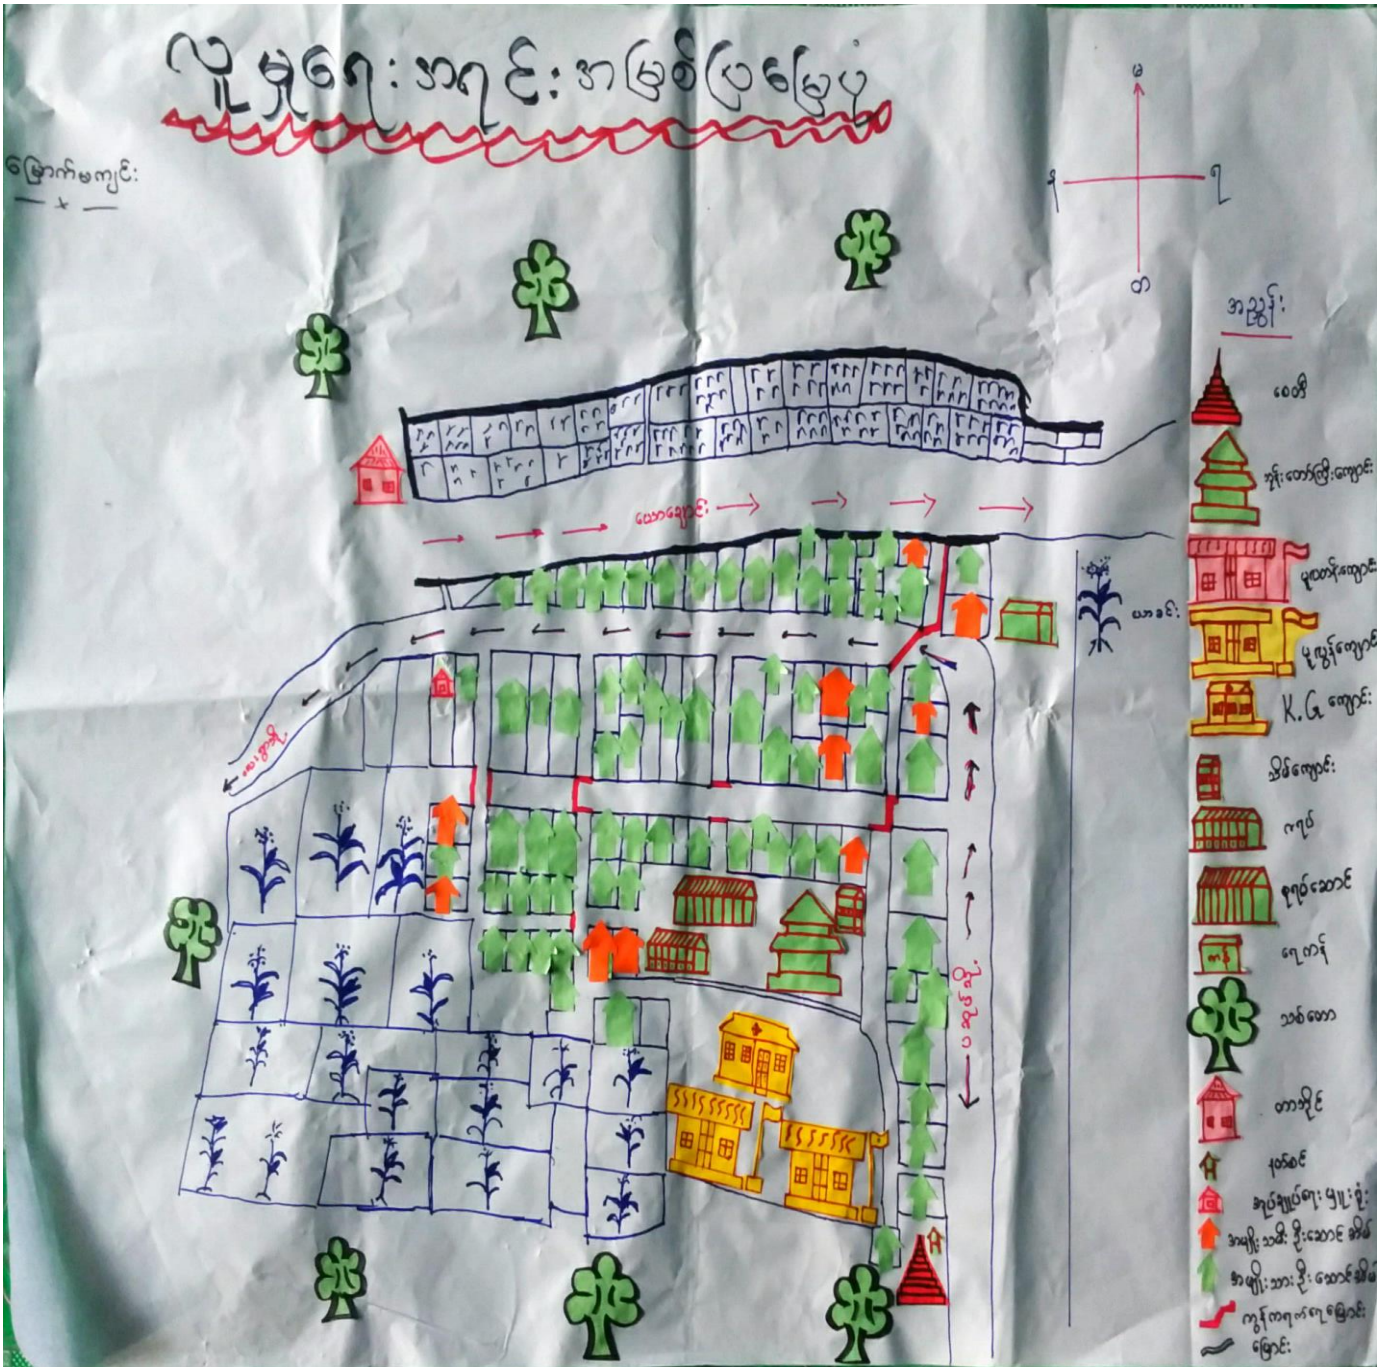 လူမှုရေးအရင်းအမြစ်ပြမြေပုံ
မြောက်မကျင်း
မ
န
ရ
တ
အညွှန်း
စေတီ
ဘုန်းတော်ကြီးကျောင်း
မူလတန်းကျောင်း
မူလွန်ကျောင်း
K.G ကျောင်း
သိမ်ကျောင်း
ဇရပ်
စုရပ်ဆောင်
ကန်
ရေကန်
သစ်တော
တာဘိုင်
နတ်စင်
အုပ်ချုပ်ရေးမှူးရုံး
အမျိုးသမီးဦးဆောင်အိမ်
အမျိုးသားဦးဆောင်အိမ်
ကွန်ကရစ်ရေမြောင်း
မြောင်း
ယောချောင်း
ယာခင်း